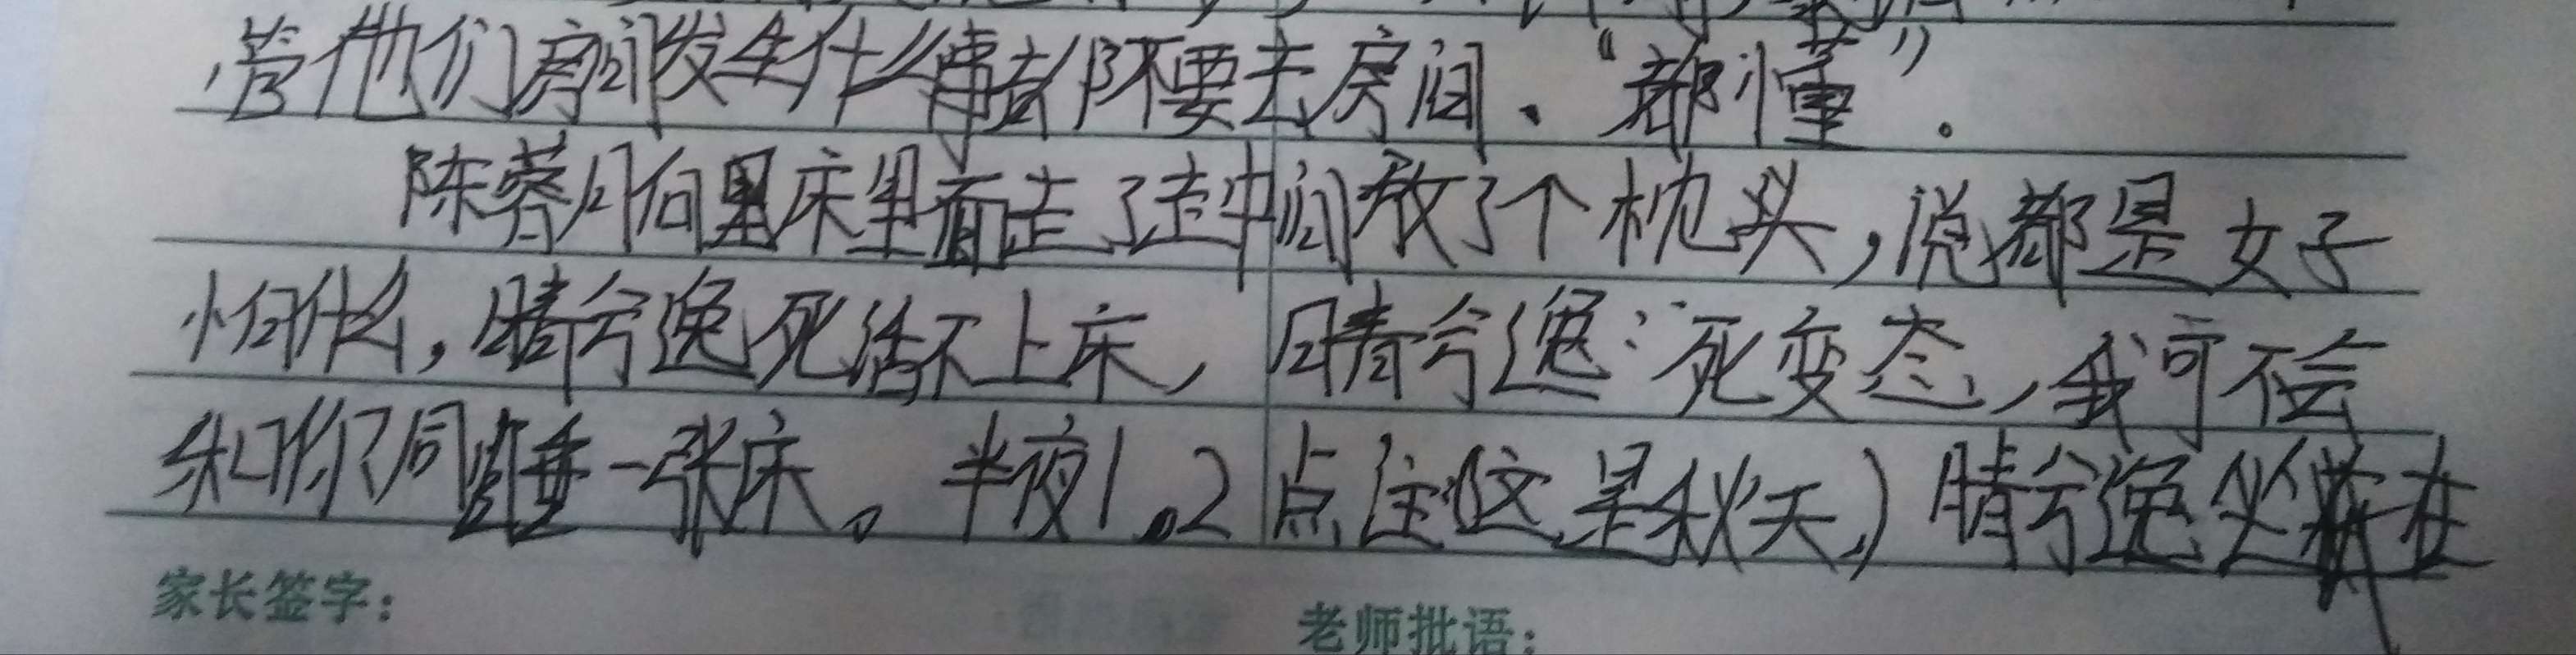 管他们房间发生什么事都不要去房间、“都懂”.
陈蓉月向里床里面走了走中间放了个枕头,说都是女子
怕什么,晴兮逸死活不上床,晴兮逸:死变态,我可不会
和你同睡一张床。半夜1.2点注(这是秋天)晴兮逸坐在
家长签字:
老师批语: